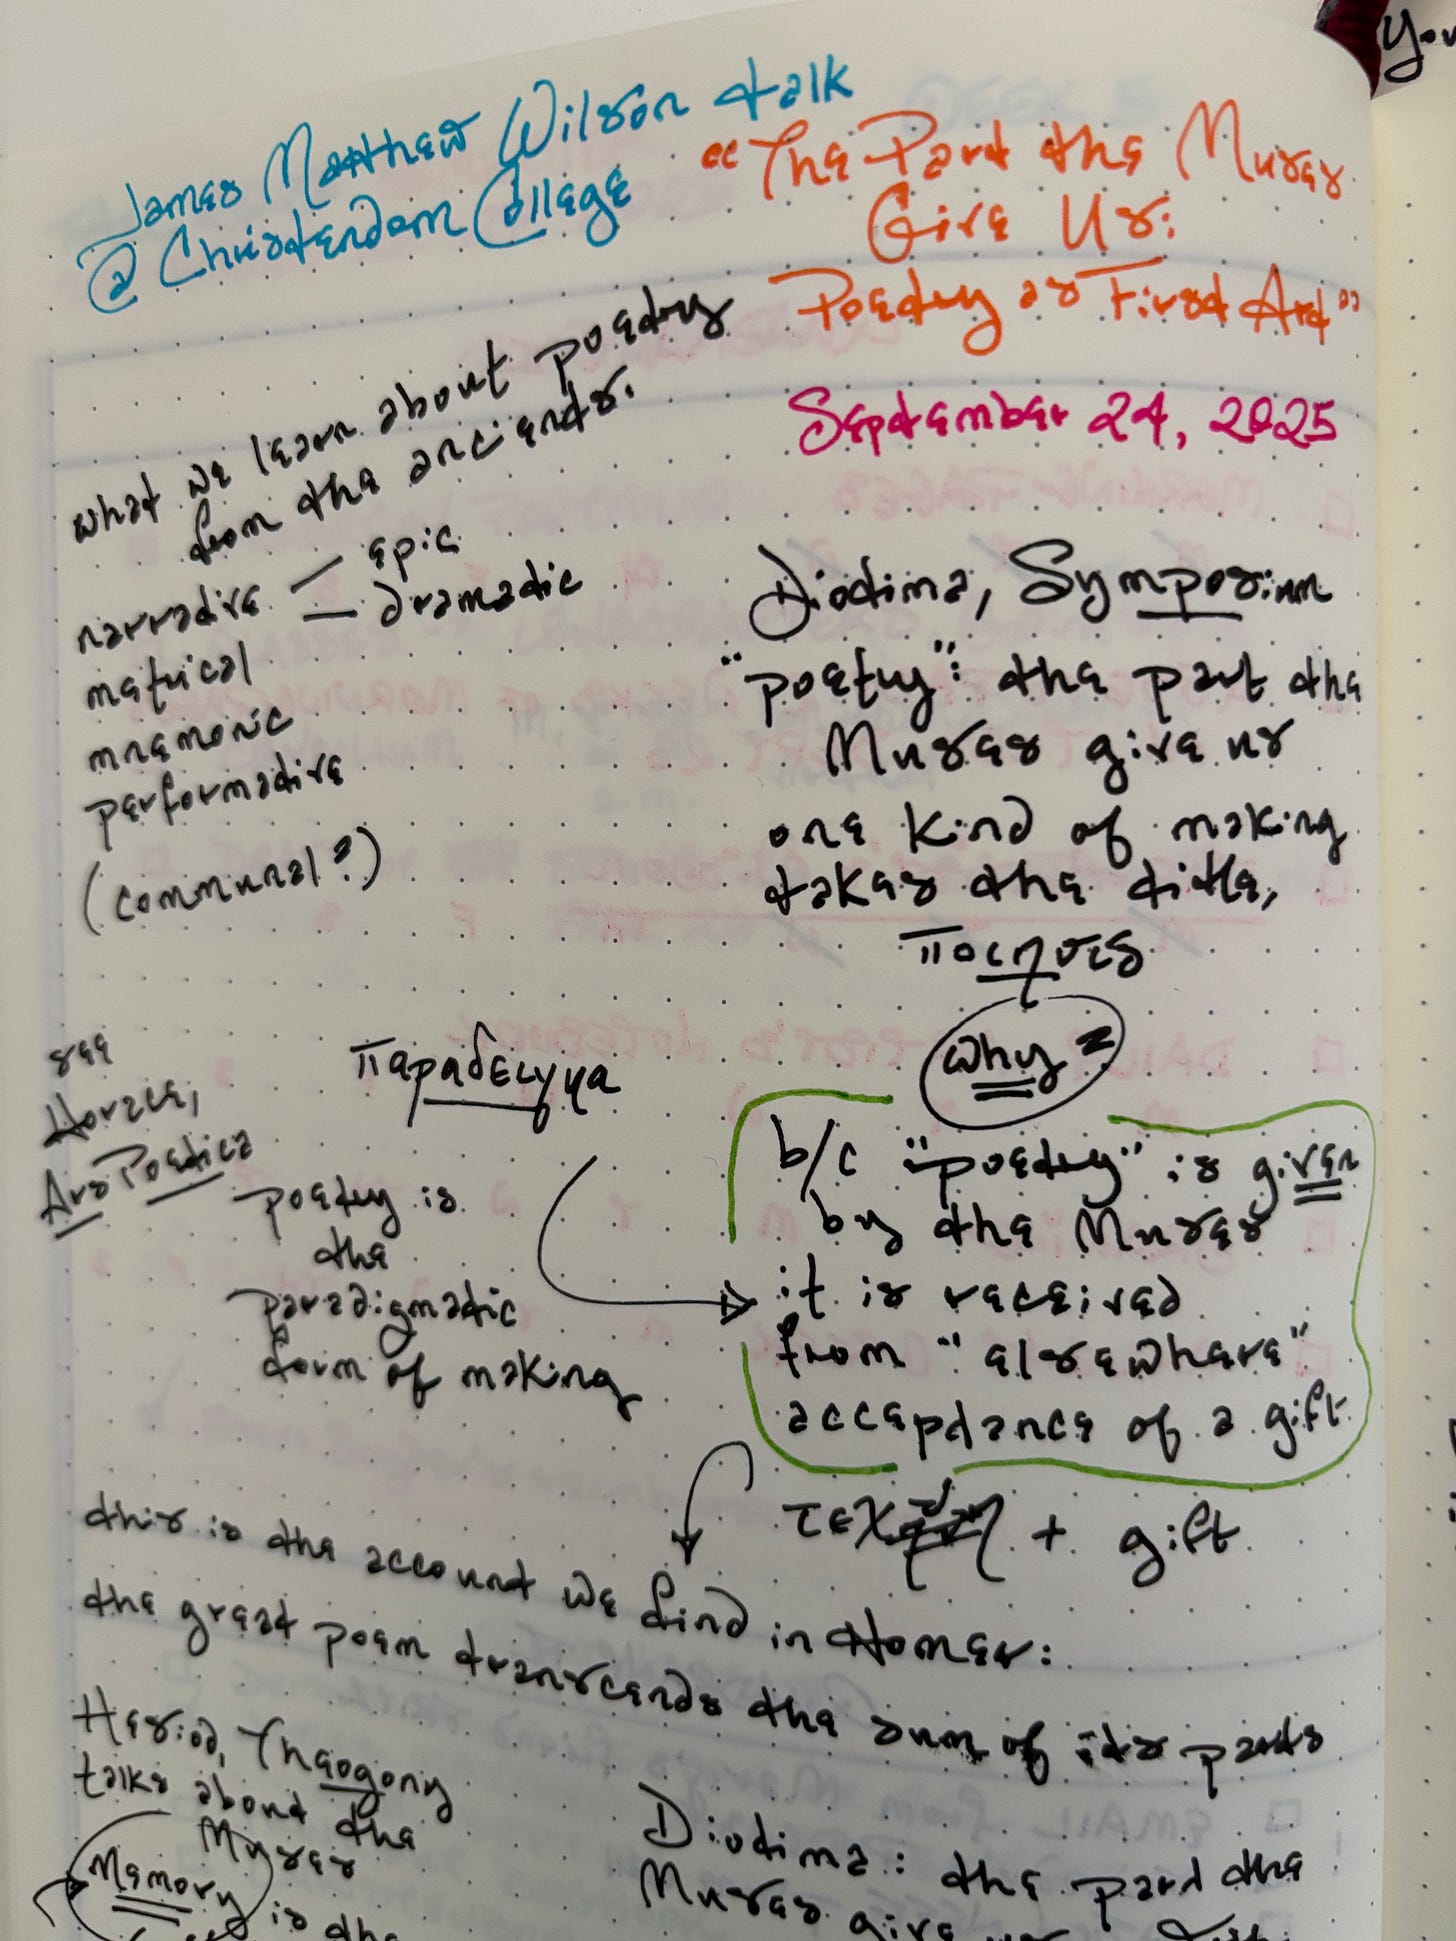 James Matthew Wilson talk
@ Christendom College
"The Part the Muses
Give Us:
Poetry as First Art"
September 24, 2025
what we learn about poetry
from the ancients.
narrative — epic
— dramatic
metrical
mnemonic
performative
(communal?)
Diotima, Symposium
"poetry": the part the
Muses give us
one kind of making
takes the title,
ποιησις
why?
see
Horace,
Ars Poetica
παραδειγμα
poetry is
the
paradigmatic
form of making
b/c "poetry" is given
by the Muses
it is received
from "elsewhere"
acceptance of a gift
τεχνη + gift
this is the account we find in Homer:
the great poem transcends the sum of its parts
Hesiod, Theogony
talks about the
Muses
Memory is the
Diotima: the part the
Muses give us
You